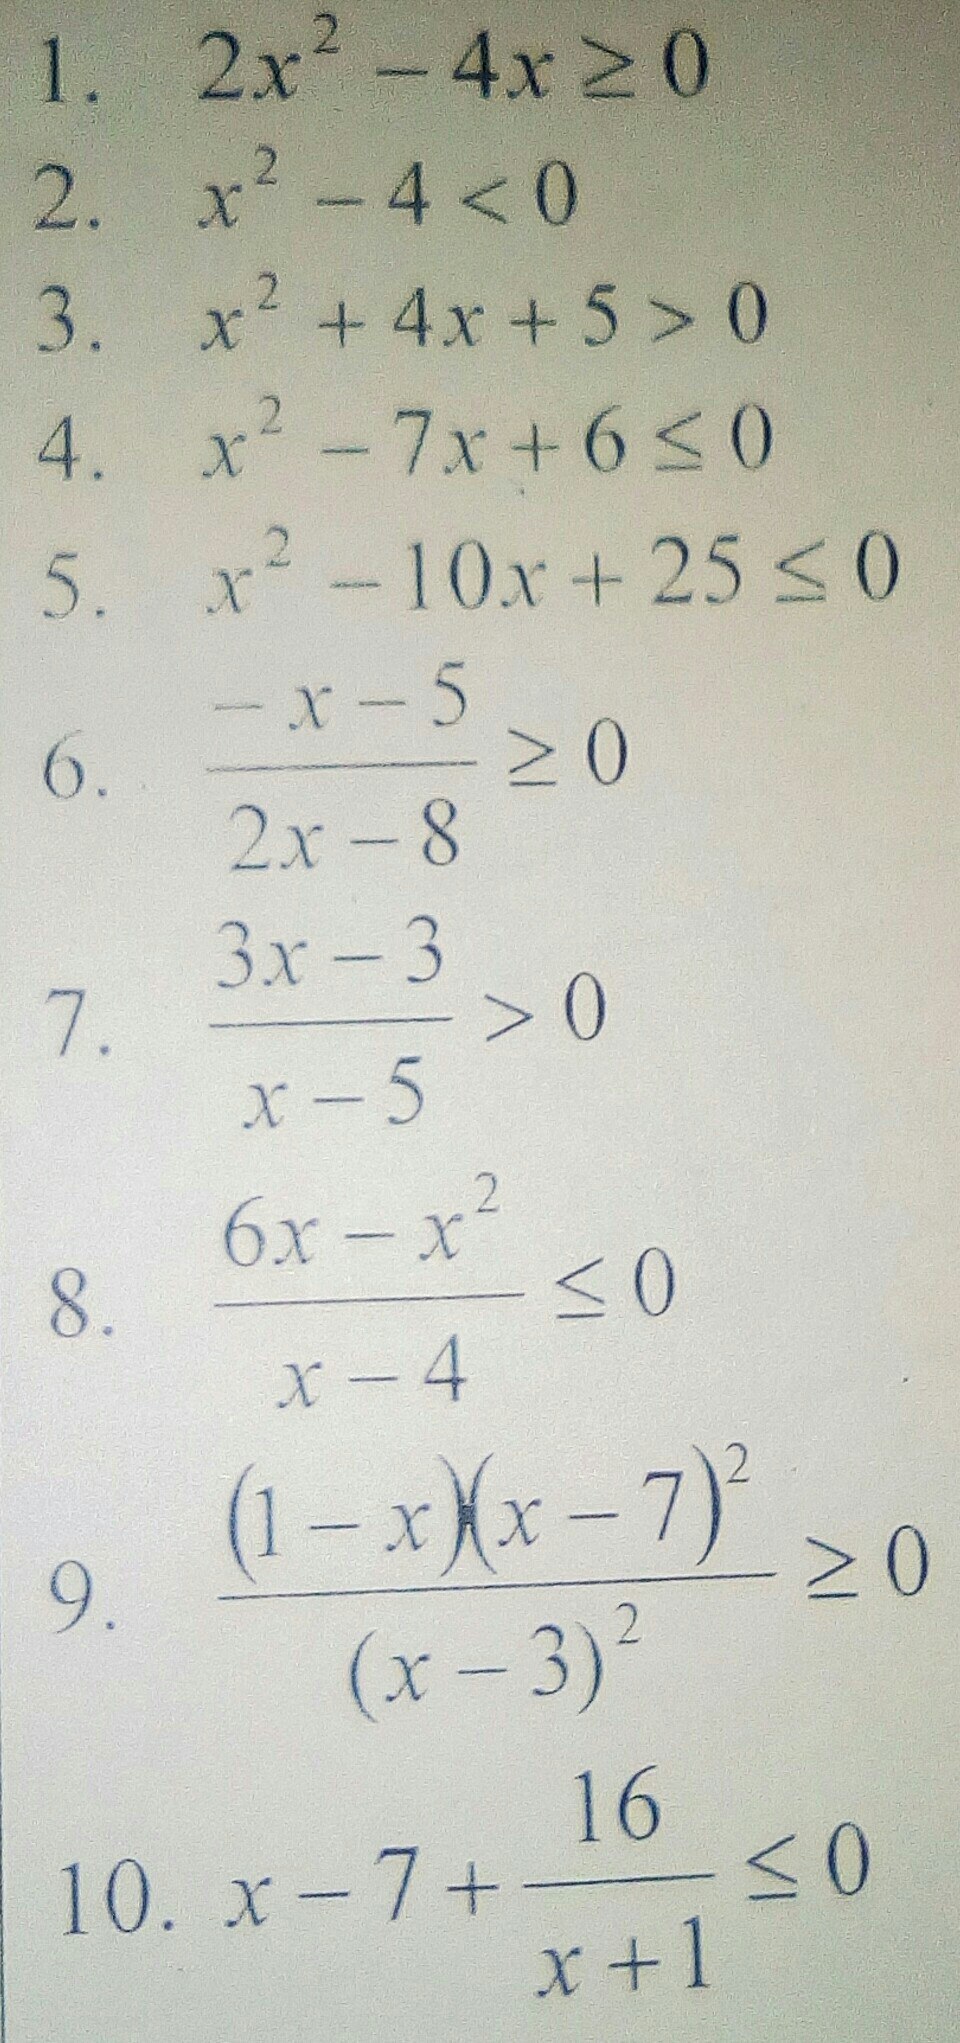 1. 2x² − 4x ≥ 0
2. x² − 4 < 0
3. x² + 4x + 5 > 0
4. x² − 7x + 6 ≤ 0
5. x² − 10x + 25 ≤ 0
6. (−x − 5)/(2x − 8) ≥ 0
7. (3x − 3)/(x − 5) > 0
8. (6x − x²)/(x − 4) ≤ 0
9. ((1 − x)(x − 7)²)/((x − 3)²) ≥ 0
10. x − 7 + 16/(x + 1) ≤ 0